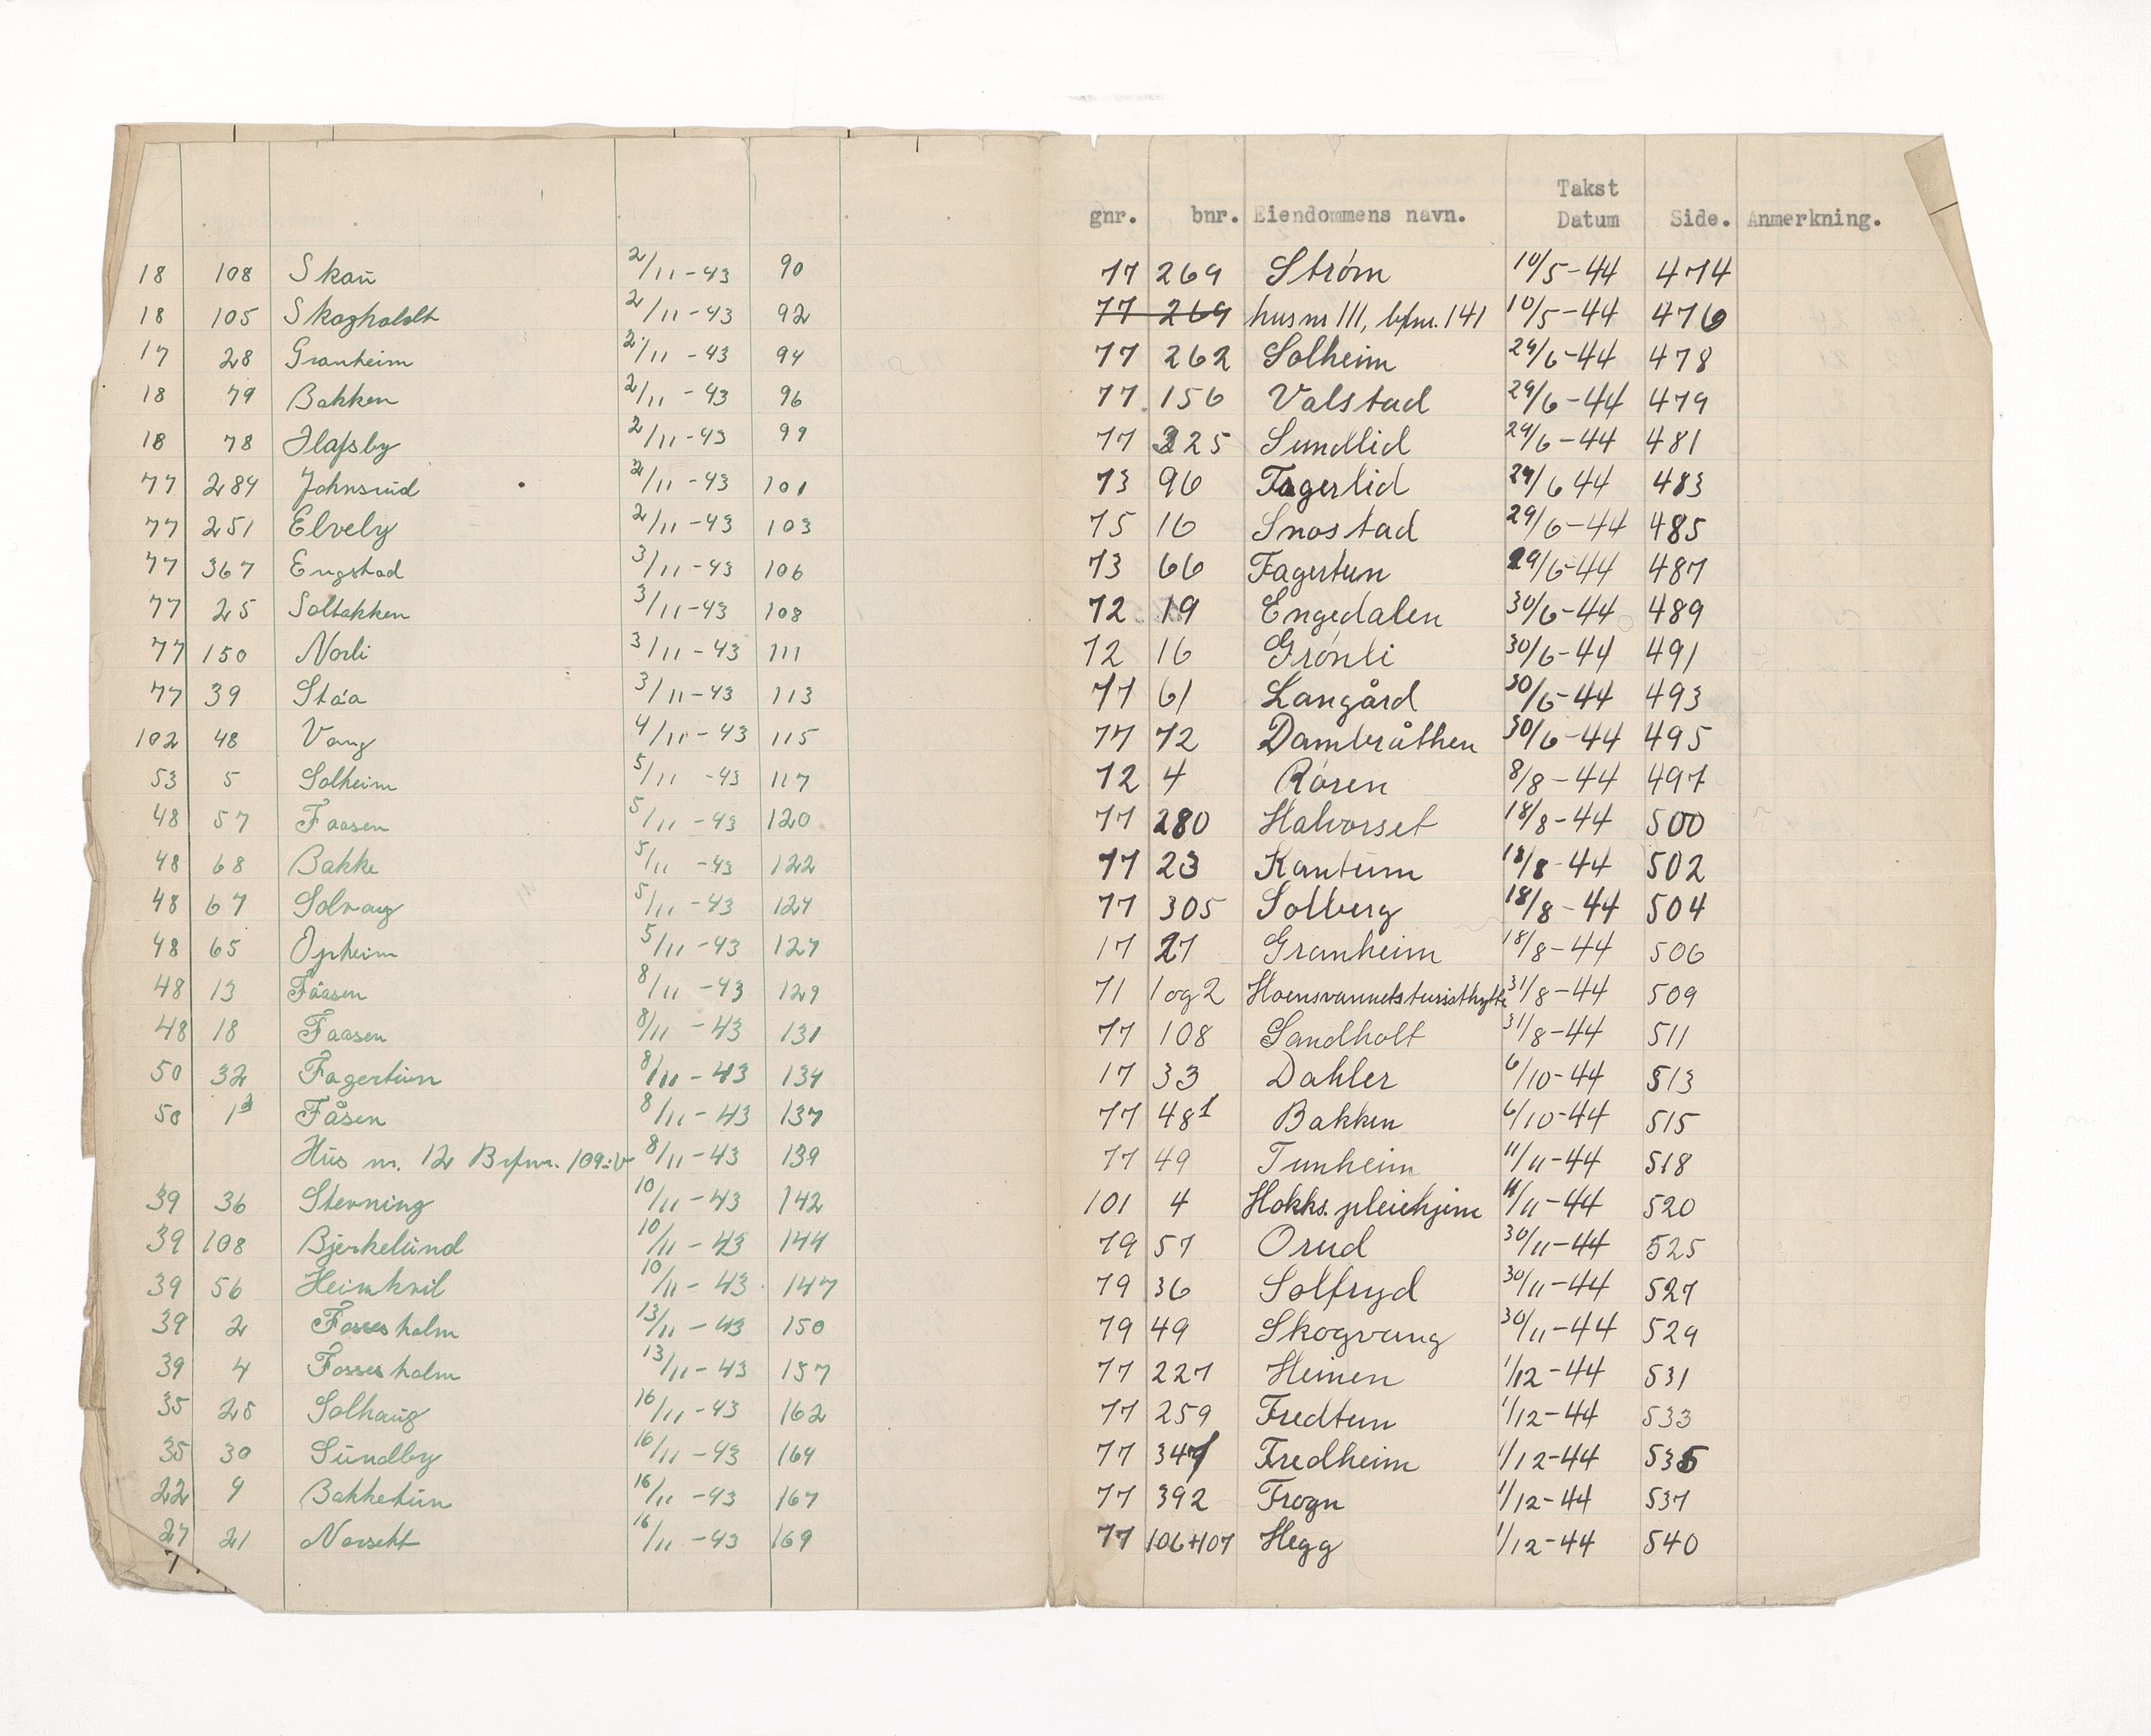 18 108 Skau 2/11-43 90
18 105 Skogholdt 2/11-43 92
17 28 Granheim 2/11-43 94
18 79 Bakken 2/11-43 96
18 78 2/11-43 99
77 284 Johnsrud 2/11-43 101
77 251 Elvely 2/11-43 103
77 367 Engstad 3/11-43 106
77 25 Solbakken 3/11-43 108
77 150 Norli 3/11-43 111
77 39 Stáa 3/11-43 113
102 48 Vang 4/11-43 115
53 5 Solheim 5/11-43 117
48 57 Faasen 5/11-43 120
48 68 Bakke 5/11-43 122
48 67 Solvang 5/11-43 124
48 65 Opheim 5/11-43 127
48 13 Faasen 8/11-43 129
48 18 Faasen 8/11-43 131
50 32 Fagertun 8/11-43 134
50 1³ Fåsen 8/11-43 137
Hus nr. 12 Brfnr. 109:b 8/11-43 139
39 36 Stenning 10/11-43 142
39 108 Bjerkelund 10/11-43 144
39 56 Heimhvil 10/11-43 147
39 2 Fossesholm 13/11-43 150
39 4 Fossesholm 13/11-43 157
35 28 Solhaug 16/11-43 162
35 30 Sundby 16/11-43 164
22 9 Bakketun 16/11-43 167
27 21 Norseht 16/11-43 169
7
Takst
gnr. bnr. Eiendommens navn. Datum Side. Anmerkning.
77 269 Strøm 10/5-44 474
77 269 husnr 111, bfnr. 141 10/5-44 476
77 262 Solheim 29/6-44 478
77 156 Valstad 29/6-44 479
77 325 Sundlid 29/6-44 481
73 96 Fagerlid 29/6 44 483
75 16 Snostad 29/6-44 485
73 66 Fagertun 29/6-44 487
72 19 Engedalen 30/6-44 489
72 16 Grønli 30/6-44 491
77 61 Langård 30/6-44 493
77 72 Dambråthen 30/6-44 495
72 4 Råsen 8/8-44 497
77 280 Halvorset 18/8-44 500
77 23 Kantum 18/8-44 502
77 305 Solberg 18/8-44 504
17 27 Granheim 18/8-44 506
71 1og2 Hoensvannets turisthytte 31/8-44 509
77 108 Sandholt 31/8-44 511
17 33 Dahler 6/10-44 513
77 48¹ Bakken 6/10-44 515
77 49 Tunheim 11/11-44 518
101 4 Hokks. pleiehjem 11/11-44 520
79 57 Orud 30/11-44 525
79 36 Solfryd 30/11-44 527
79 49 Skogvang 30/11-44 529
77 227 Heimen 1/12-44 531
77 259 Fredtun 1/12-44 533
77 347 Fredheim 1/12-44 535
77 392 Frogn 1/12-44 537
77 106+107 Hegg 1/12-44 540